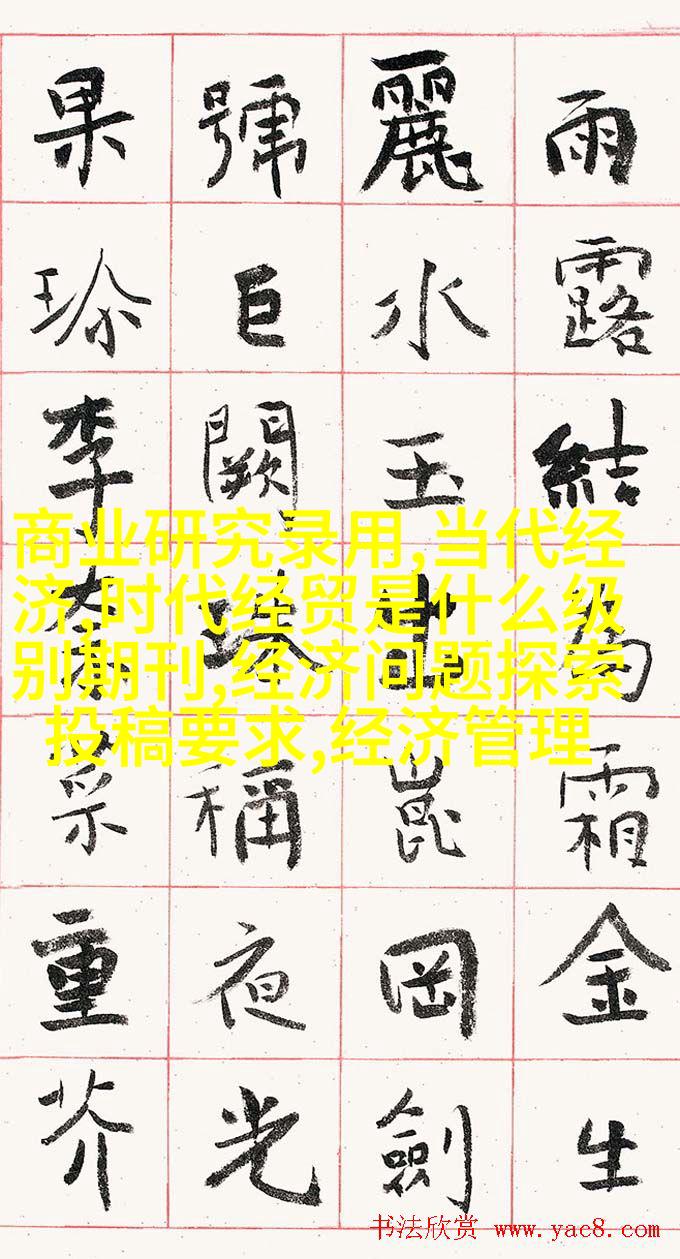 雨露結為霜金生
麗水玉出崑岡劍
號巨闕珠稱夜光
果珍李柰菜重芥
商业研究录用,当代经
济,时代经贸是什么级
别期刊,经济问题探索
投稿要求,经济管理
书法欣赏 www.yac8.com